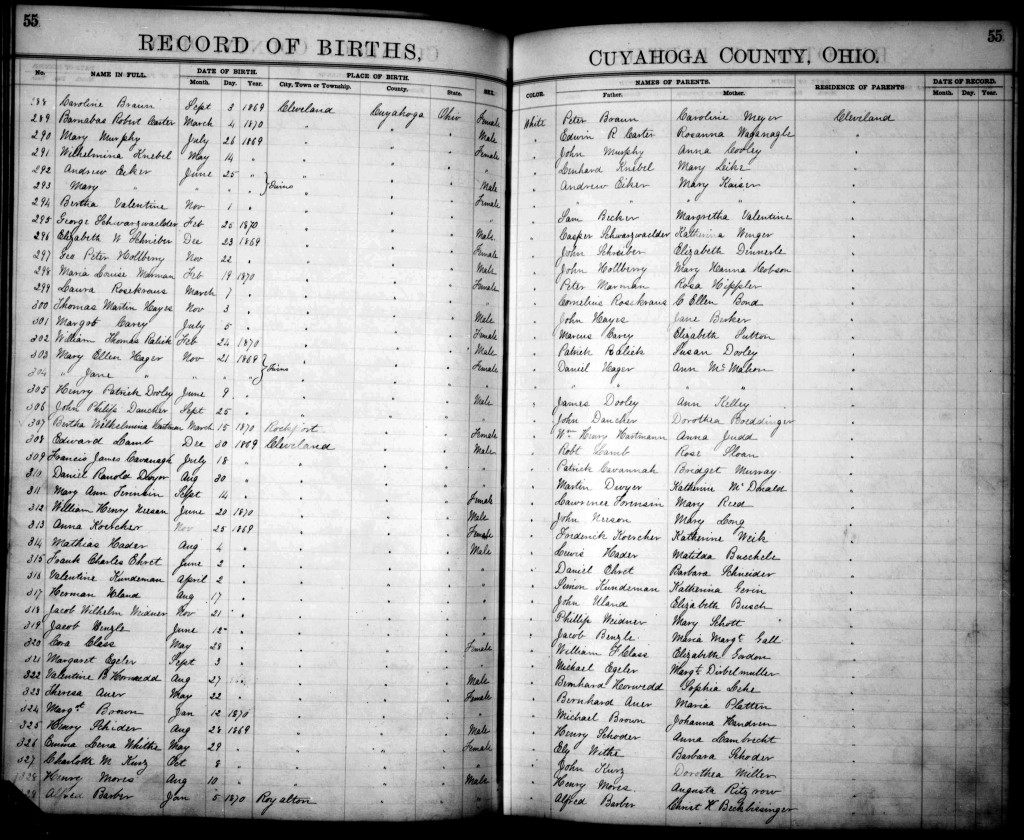 55
RECORD OF BIRTHS,
No. NAME IN FULL. DATE OF BIRTH. PLACE OF BIRTH. SEX.
Month. Day. Year. City, Town or Township. County. State.
288 Caroline Braun Sept 3 1869 Cleveland Cuyahoga Ohio Female
289 Barnabas Robert Carter March 4 1870 " " " Male
290 Mary Murphy July 26 1869 " " " Female
291 Wilhelmina Knebel May 14 " " " "
292 Andrew Eiker June 25 " " " " Male
293 Mary " " " " } Twins " " " Female
294 Bertha Valentine Nov 1 " " " " "
295 George Schwarzwaelder Feb 25 1870 " " " Male
296 Elizabeth W Schrieber Dec 23 1869 " " " Female
297 Geo Peter Hollberry Nov 22 " " " " Male
298 Maria Louise Marman Feb 19 1870 " " " Female
299 Laura Rosekraus March 7 " " " "
300 Thomas Martin Hayes Nov 3 " " " " Male
301 Margot Carey July 5 " " " Female
302 William Thomas Ralick Feb 24 1870 " " " Male
303 Mary Ellen Hager Nov 21 1869 } Twins " " " Female
304 " Jane " " " " " " "
305 Henry Patrick Dooley June 9 " " " " Male
306 John Philip Dancker Sept 25 " " " "
307 Bertha Wilhelmina Hartman March 15 1870 Rockport " " Female
308 Edward Lamb Dec 30 1869 Cleveland " " Male
309 Francis James Cavanagh July 18 " " " "
310 Daniel Dwyer Aug 30 " " " "
311 Mary Ann Sept 14 " " " Female
312 William Henry Neeson June 20 1870 " " " Male
313 Anna Koercher Nov 25 1869 " " " Female
314 Mathias Hader Aug 4 " " " " Male
315 Frank Charles Ehret June 2 " " " "
316 Valentine Kundeman April 2 " " " "
317 Herman Uland Aug 17 " " " "
318 Jacob Wilhelm Weidner Nov 21 " " "
319 Jacob Benzle June 12 " " "
320 Cora Class May 28 " " " Female
321 Margaret Egeler Sept 3 " " "
322 Valentine B Horwedd Aug 27 " " " Male
323 Theresa Auer May 22 " " " Female
324 Margt Brown Jan 12 1870 " " "
325 Henry Aug 28 1869 " " " Male
326 Emma Lena Whithe May 29 " " " Female
327 Charlotte M Kurz Oct 8 " " "
328 Henry Mores Aug 10 " " " Male
29 Alfred Barber Jan 5 1870 Royalton " "
55
CUYAHOGA COUNTY, OHIO.
COLOR. NAMES OF PARENTS. RESIDENCE OF PARENTS DATE OF RECORD.
Father. Mother. Month. Day. Year.
White Peter Braun Caroline Meyer Cleveland
" Edwin R Carter Rosanna
" John Murphy Anna Cooley
" Lenhard Knebel Mary Leike
" Andrew Eiker Mary Kaiser
" " " "
" Sam Becker Margretha Valentine
" Casper Schwarzwaelder Katherina Wenger
" John Schreiber Elizabeth Dennerle
" John Hollberry Mary Hanna Hobson
" Peter Marman Rosa Hippler
" Cornelius Rosekraus C Ellen Bond
" John Hayes Jane Barker
" Marcus Carey Elizabeth Sutton
" Patrick Ralick Susan Dooley
" Daniel Hager Ann McMahon
" " " "
" James Dooley Ann Kelley
" John Dancker Dorothea Breddinger
" Wm Henry Hartmann Anna Judd
" Robt Lamb Rose Sloan
" Patrick Cavannah Bridget Murray
" Martin Dwyer Katherine McDonald
" Lawrence Mary Reed
" John Neeson Mary Long
" Frederick Koercher Katherine Weik
" Lewis Hader Matilda Buechele
" Daniel Ehret Barbara Schneider
" Simon Kundeman Katherina Gerin
" John Uland Elizabeth Busch
" Phillip Weidner Mary Schott
" Jacob Benzle Maria Margt Gall
" William F Class Elizabeth Gordon
" Michael Egeler Margt Dirbelmuller
" Bernhard Horwedd Sophia Leke
" Bernhard Auer Maria Platten
" Michael Brown Johanna Hendren
" Henry Schoder Anna Lambrecht
" Ely Withe Barbara Schoder
" John Kurz Dorothea Miller
" Henry Mores Augusta Ritzrow
" Alfred Barber Christ K Beckbissinger